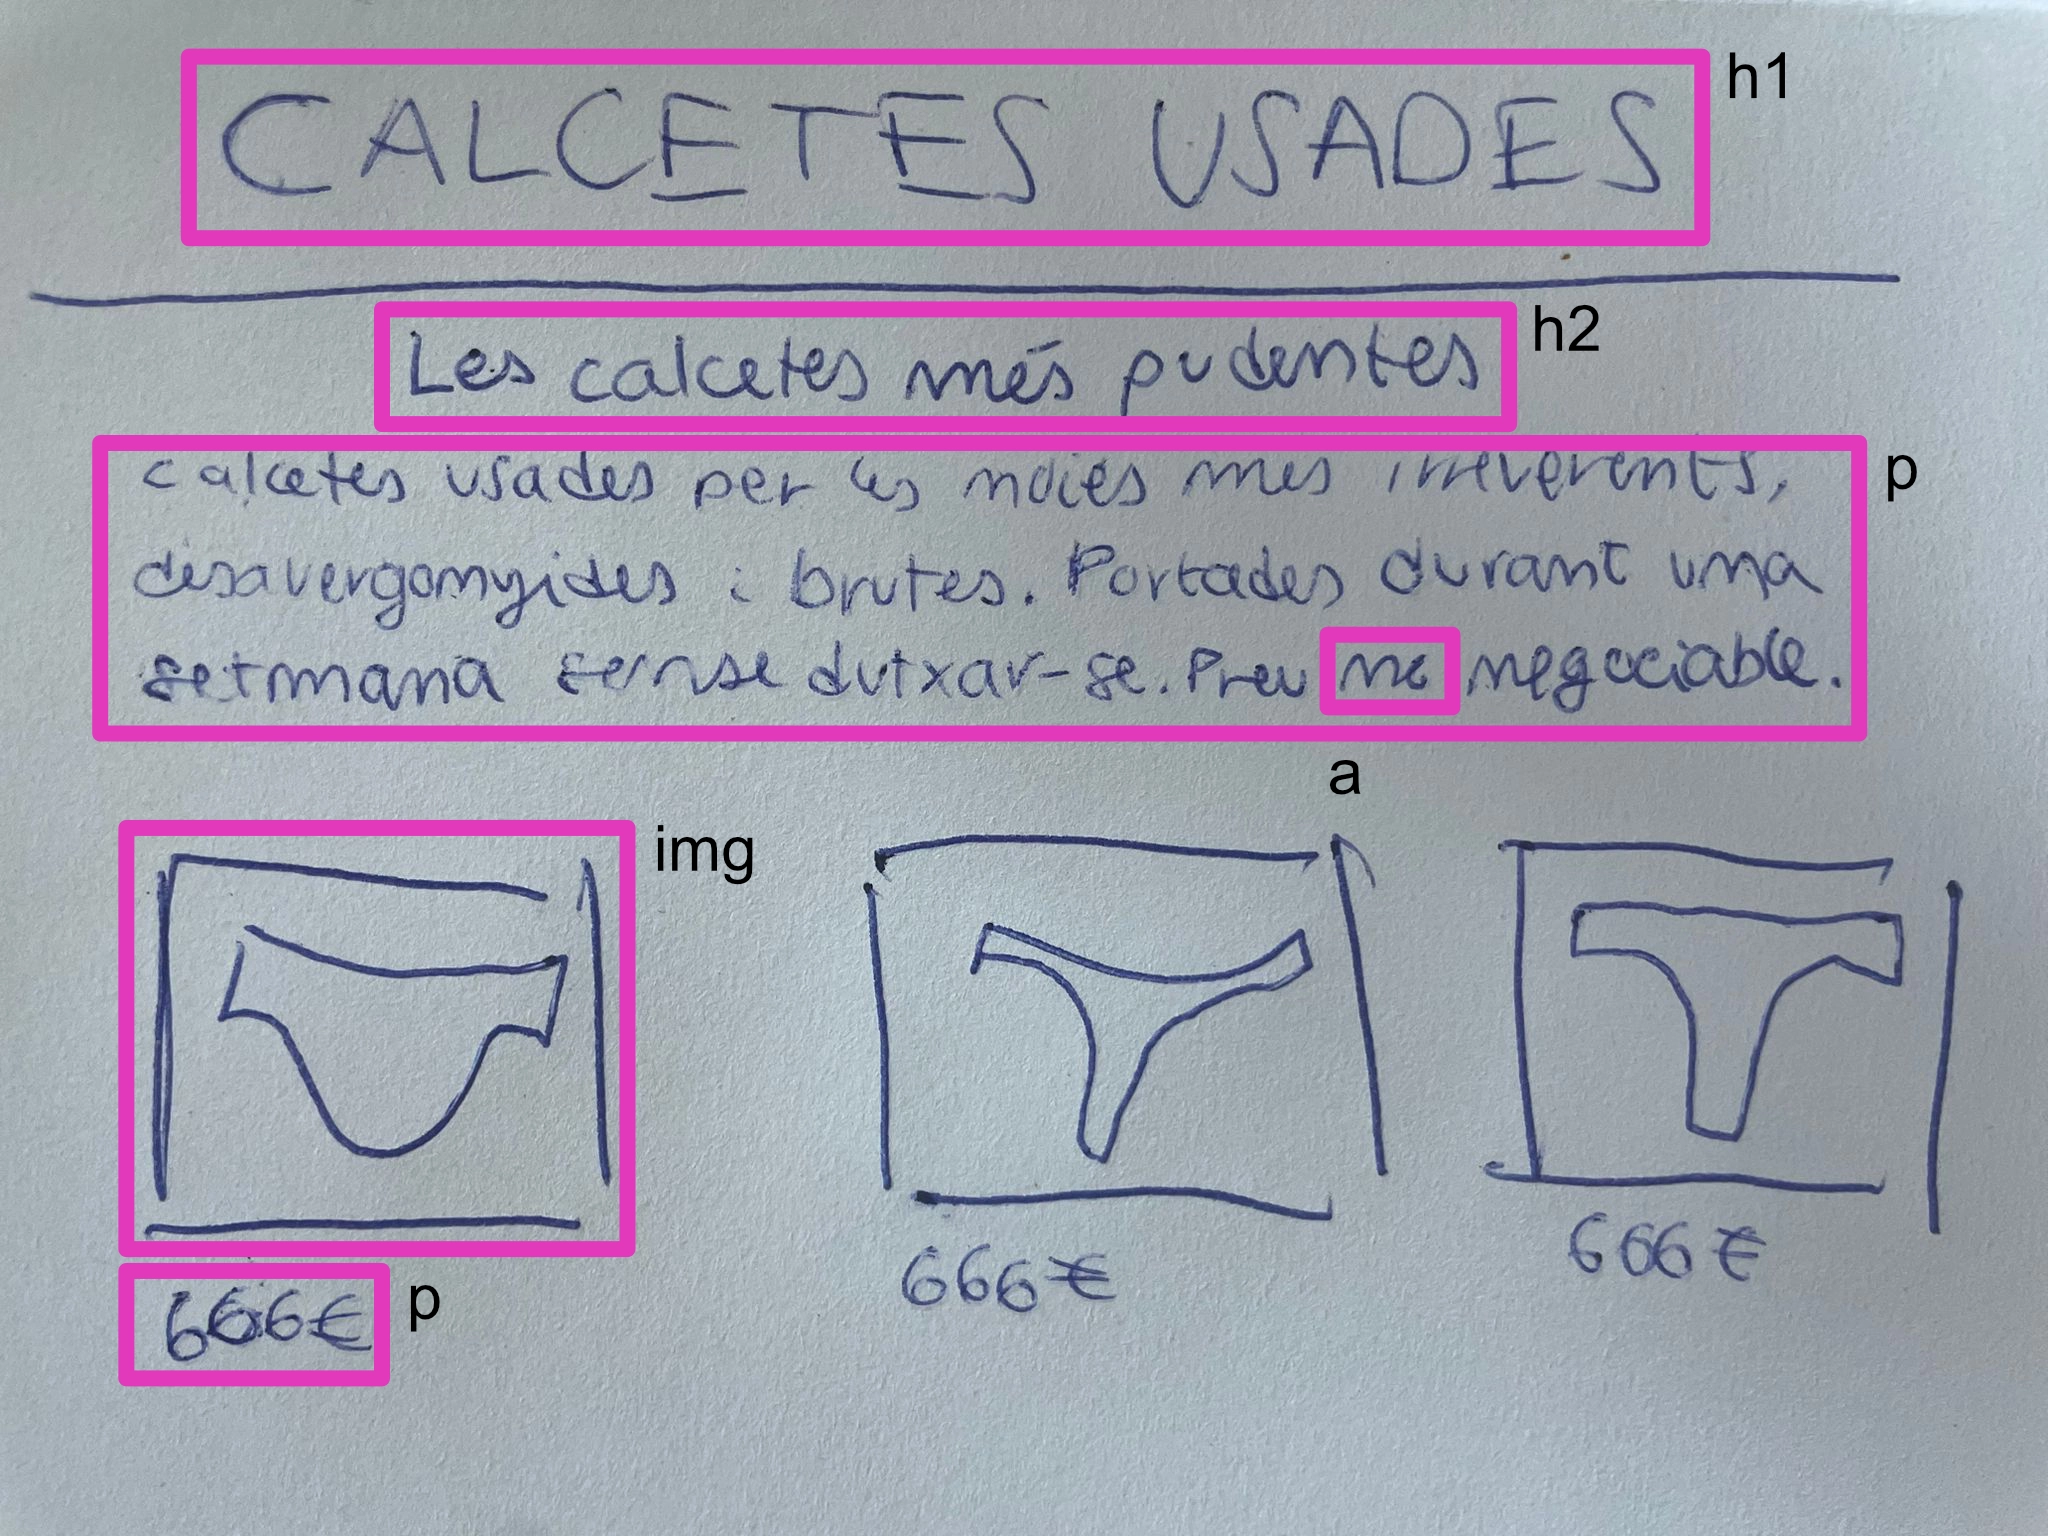 CALCETES USADES
h1
Les calcetes més pudentes
h2
calcetes usades per les noies mes irreverents,
p
desavergonyides i brutes. Portades durant una
setmana sense dutxar-se. Preu no negociable.
a
img
666€
p
666€
666€